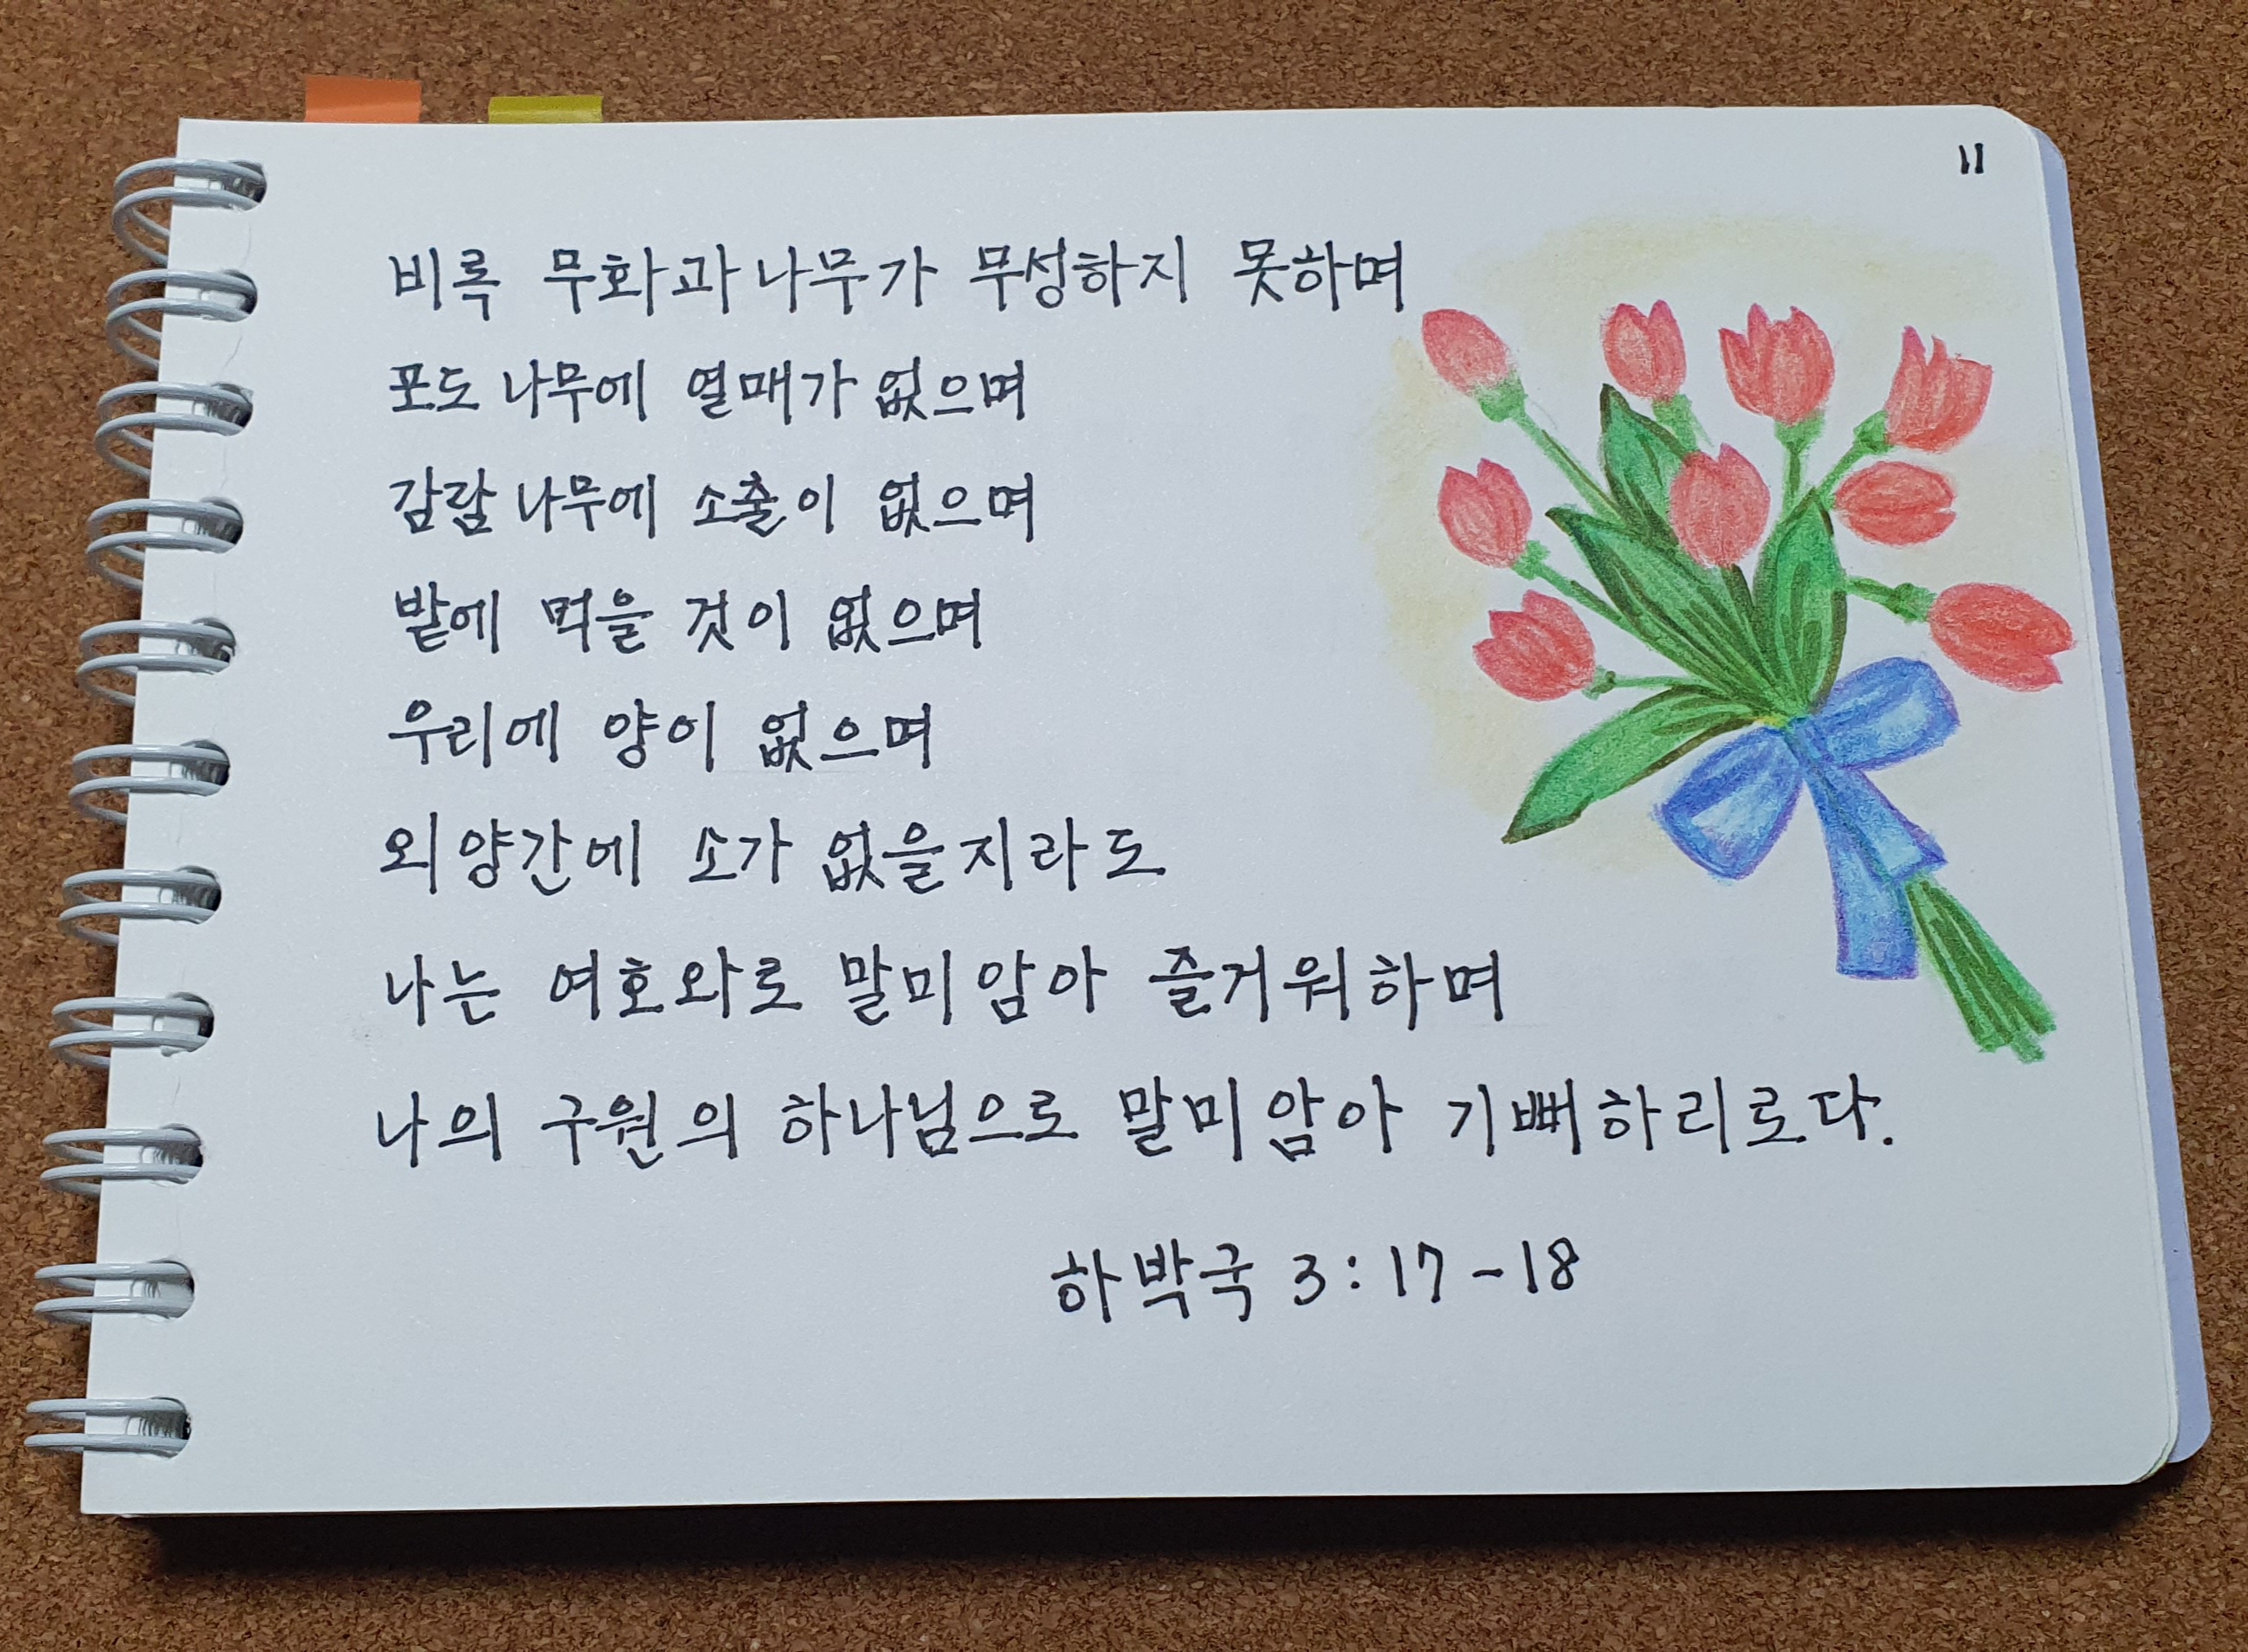 11
비록 무화과나무가 무성하지 못하며
포도나무에 열매가 없으며
감람나무에 소출이 없으며
밭에 먹을 것이 없으며
우리에 양이 없으며
외양간에 소가 없을지라도
나는 여호와로 말미암아 즐거워하며
나의 구원의 하나님으로 말미암아 기뻐하리로다.
하박국 3:17-18